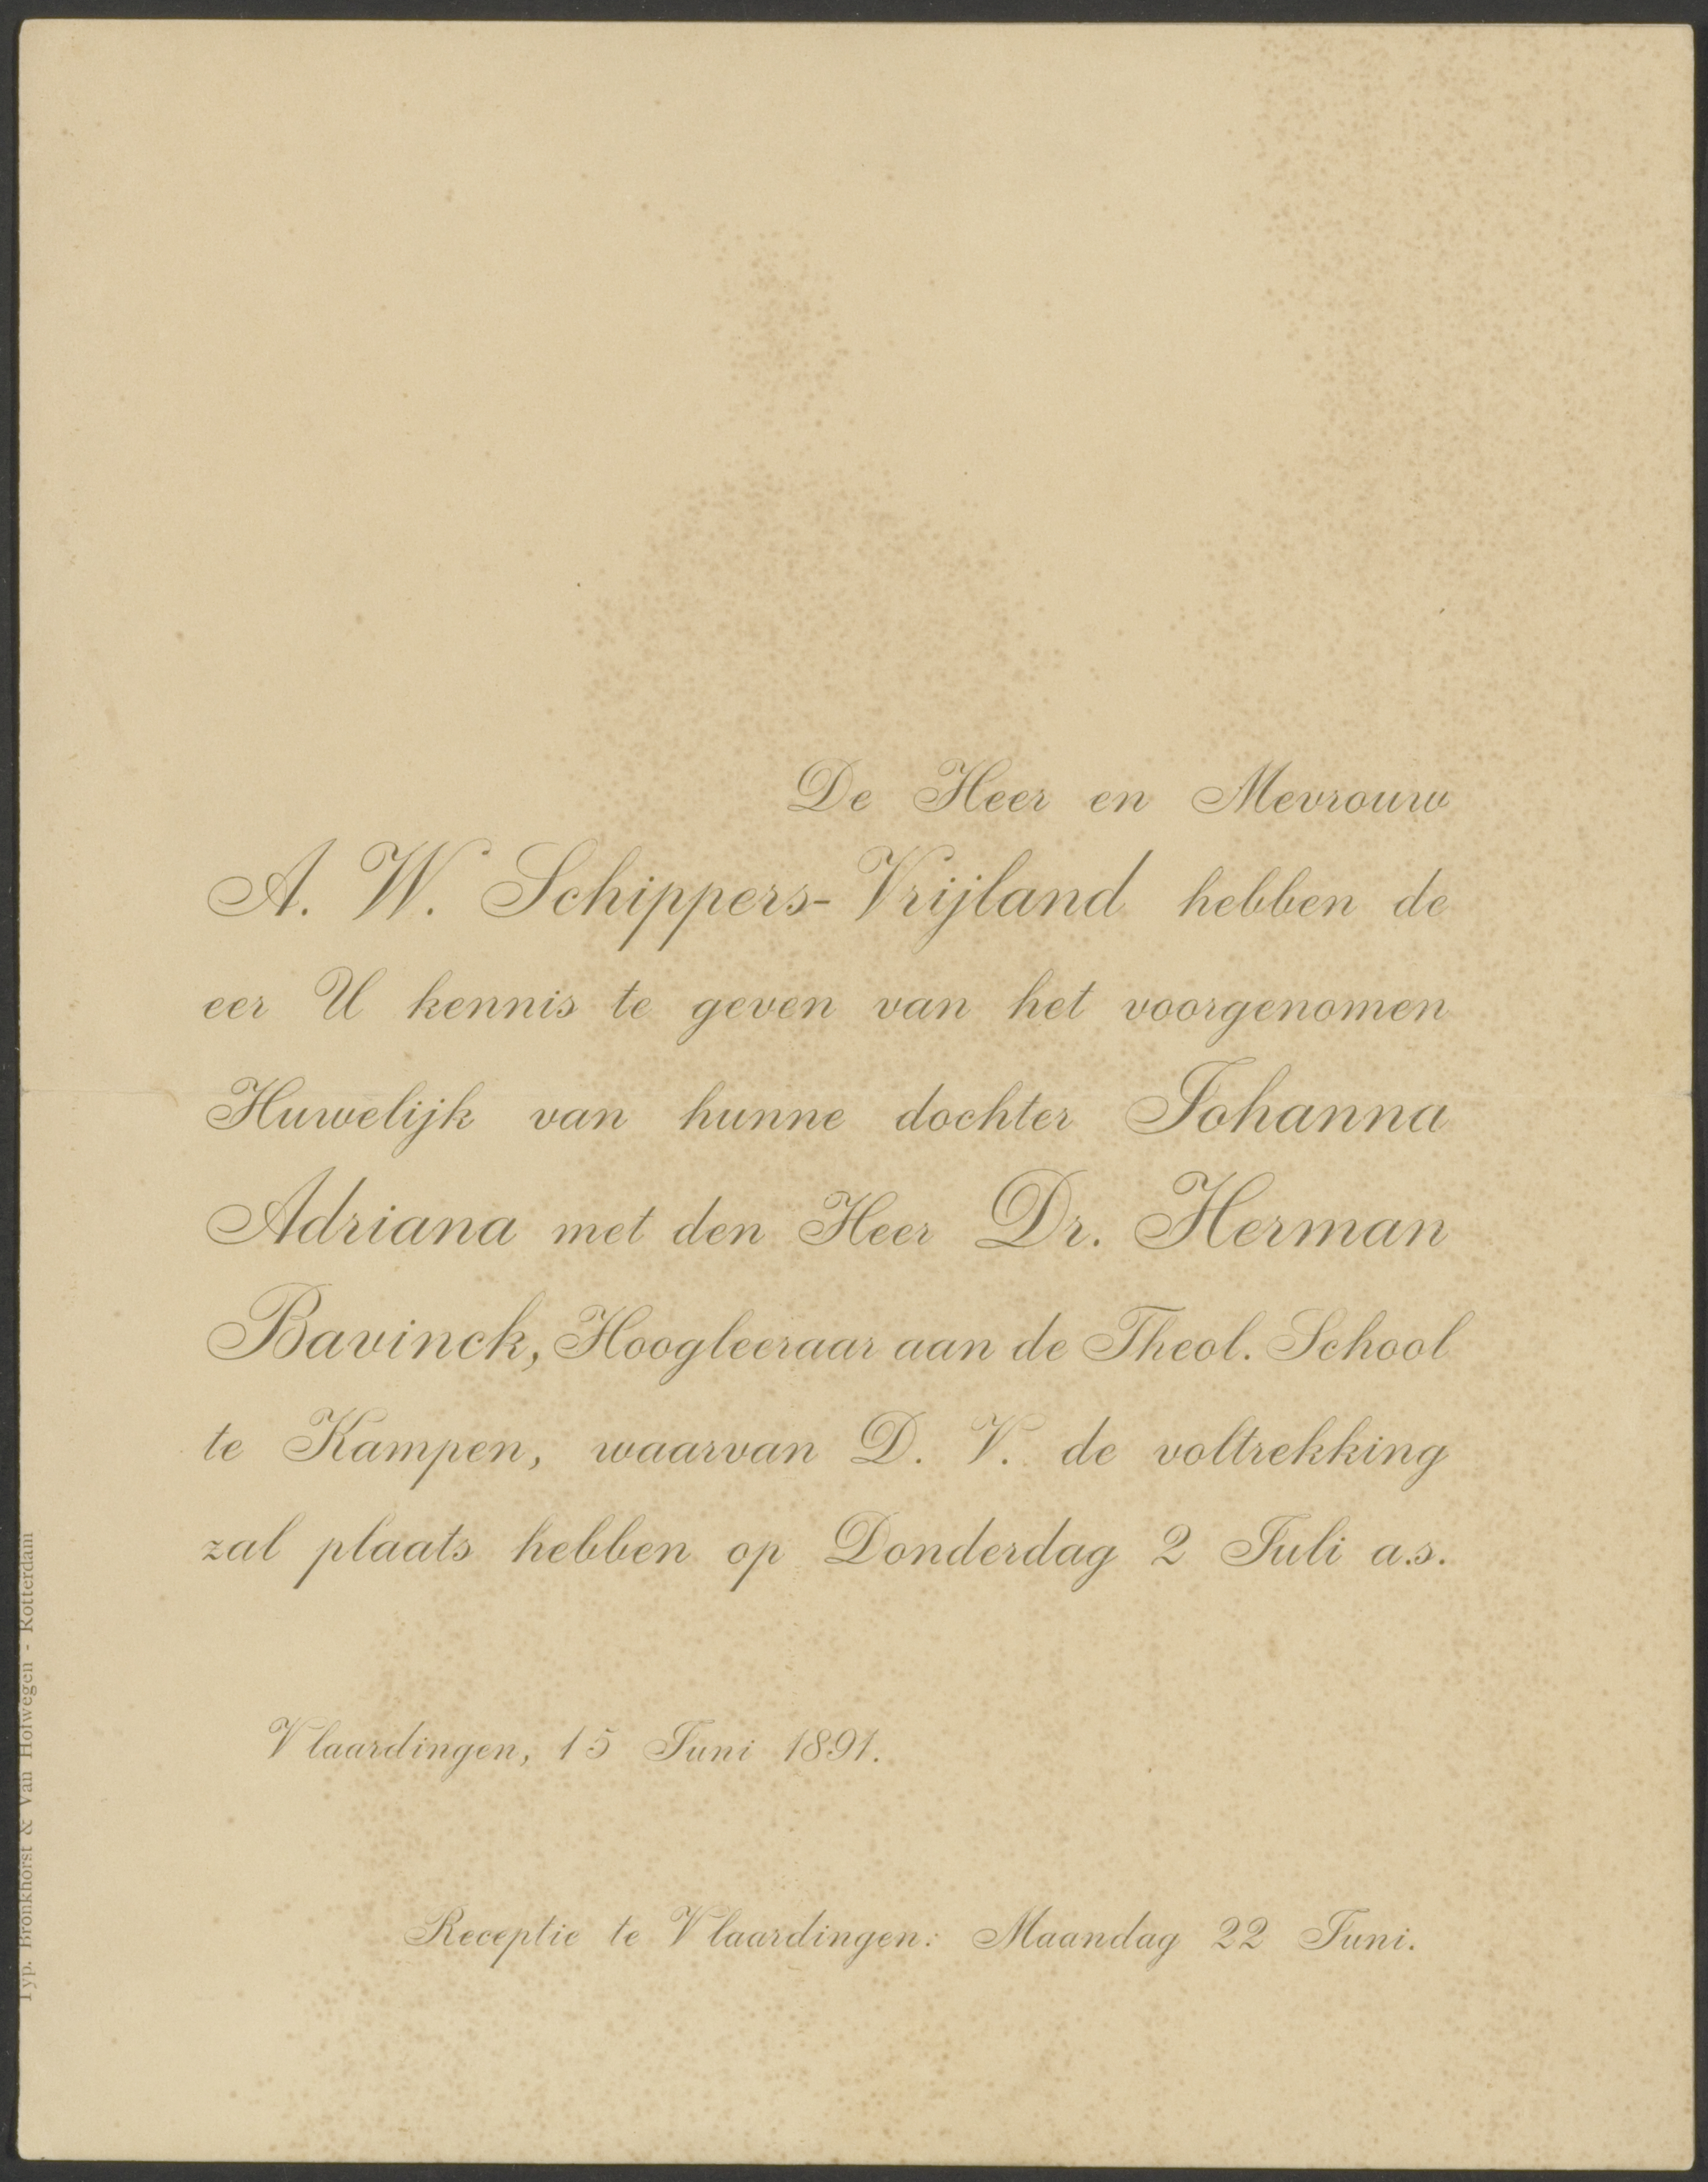 De Heer en Mevrouw
A. W. Schippers-Vrijland hebben de
eer U kennis te geven van het voorgenomen
Huwelijk van hunne dochter Johanna
Adriana met den Heer Dr. Herman
Bavinck, Hoogleeraar aan de Theol. School
te Kampen, waarvan D. V. de voltrekking
zal plaats hebben op Donderdag 2 Juli a.s.
Vlaardingen, 15 Juni 1891.
Receptie te Vlaardingen: Maandag 22 Juni.
Typ. Bronkhorst & Van Hofwegen - Rotterdam